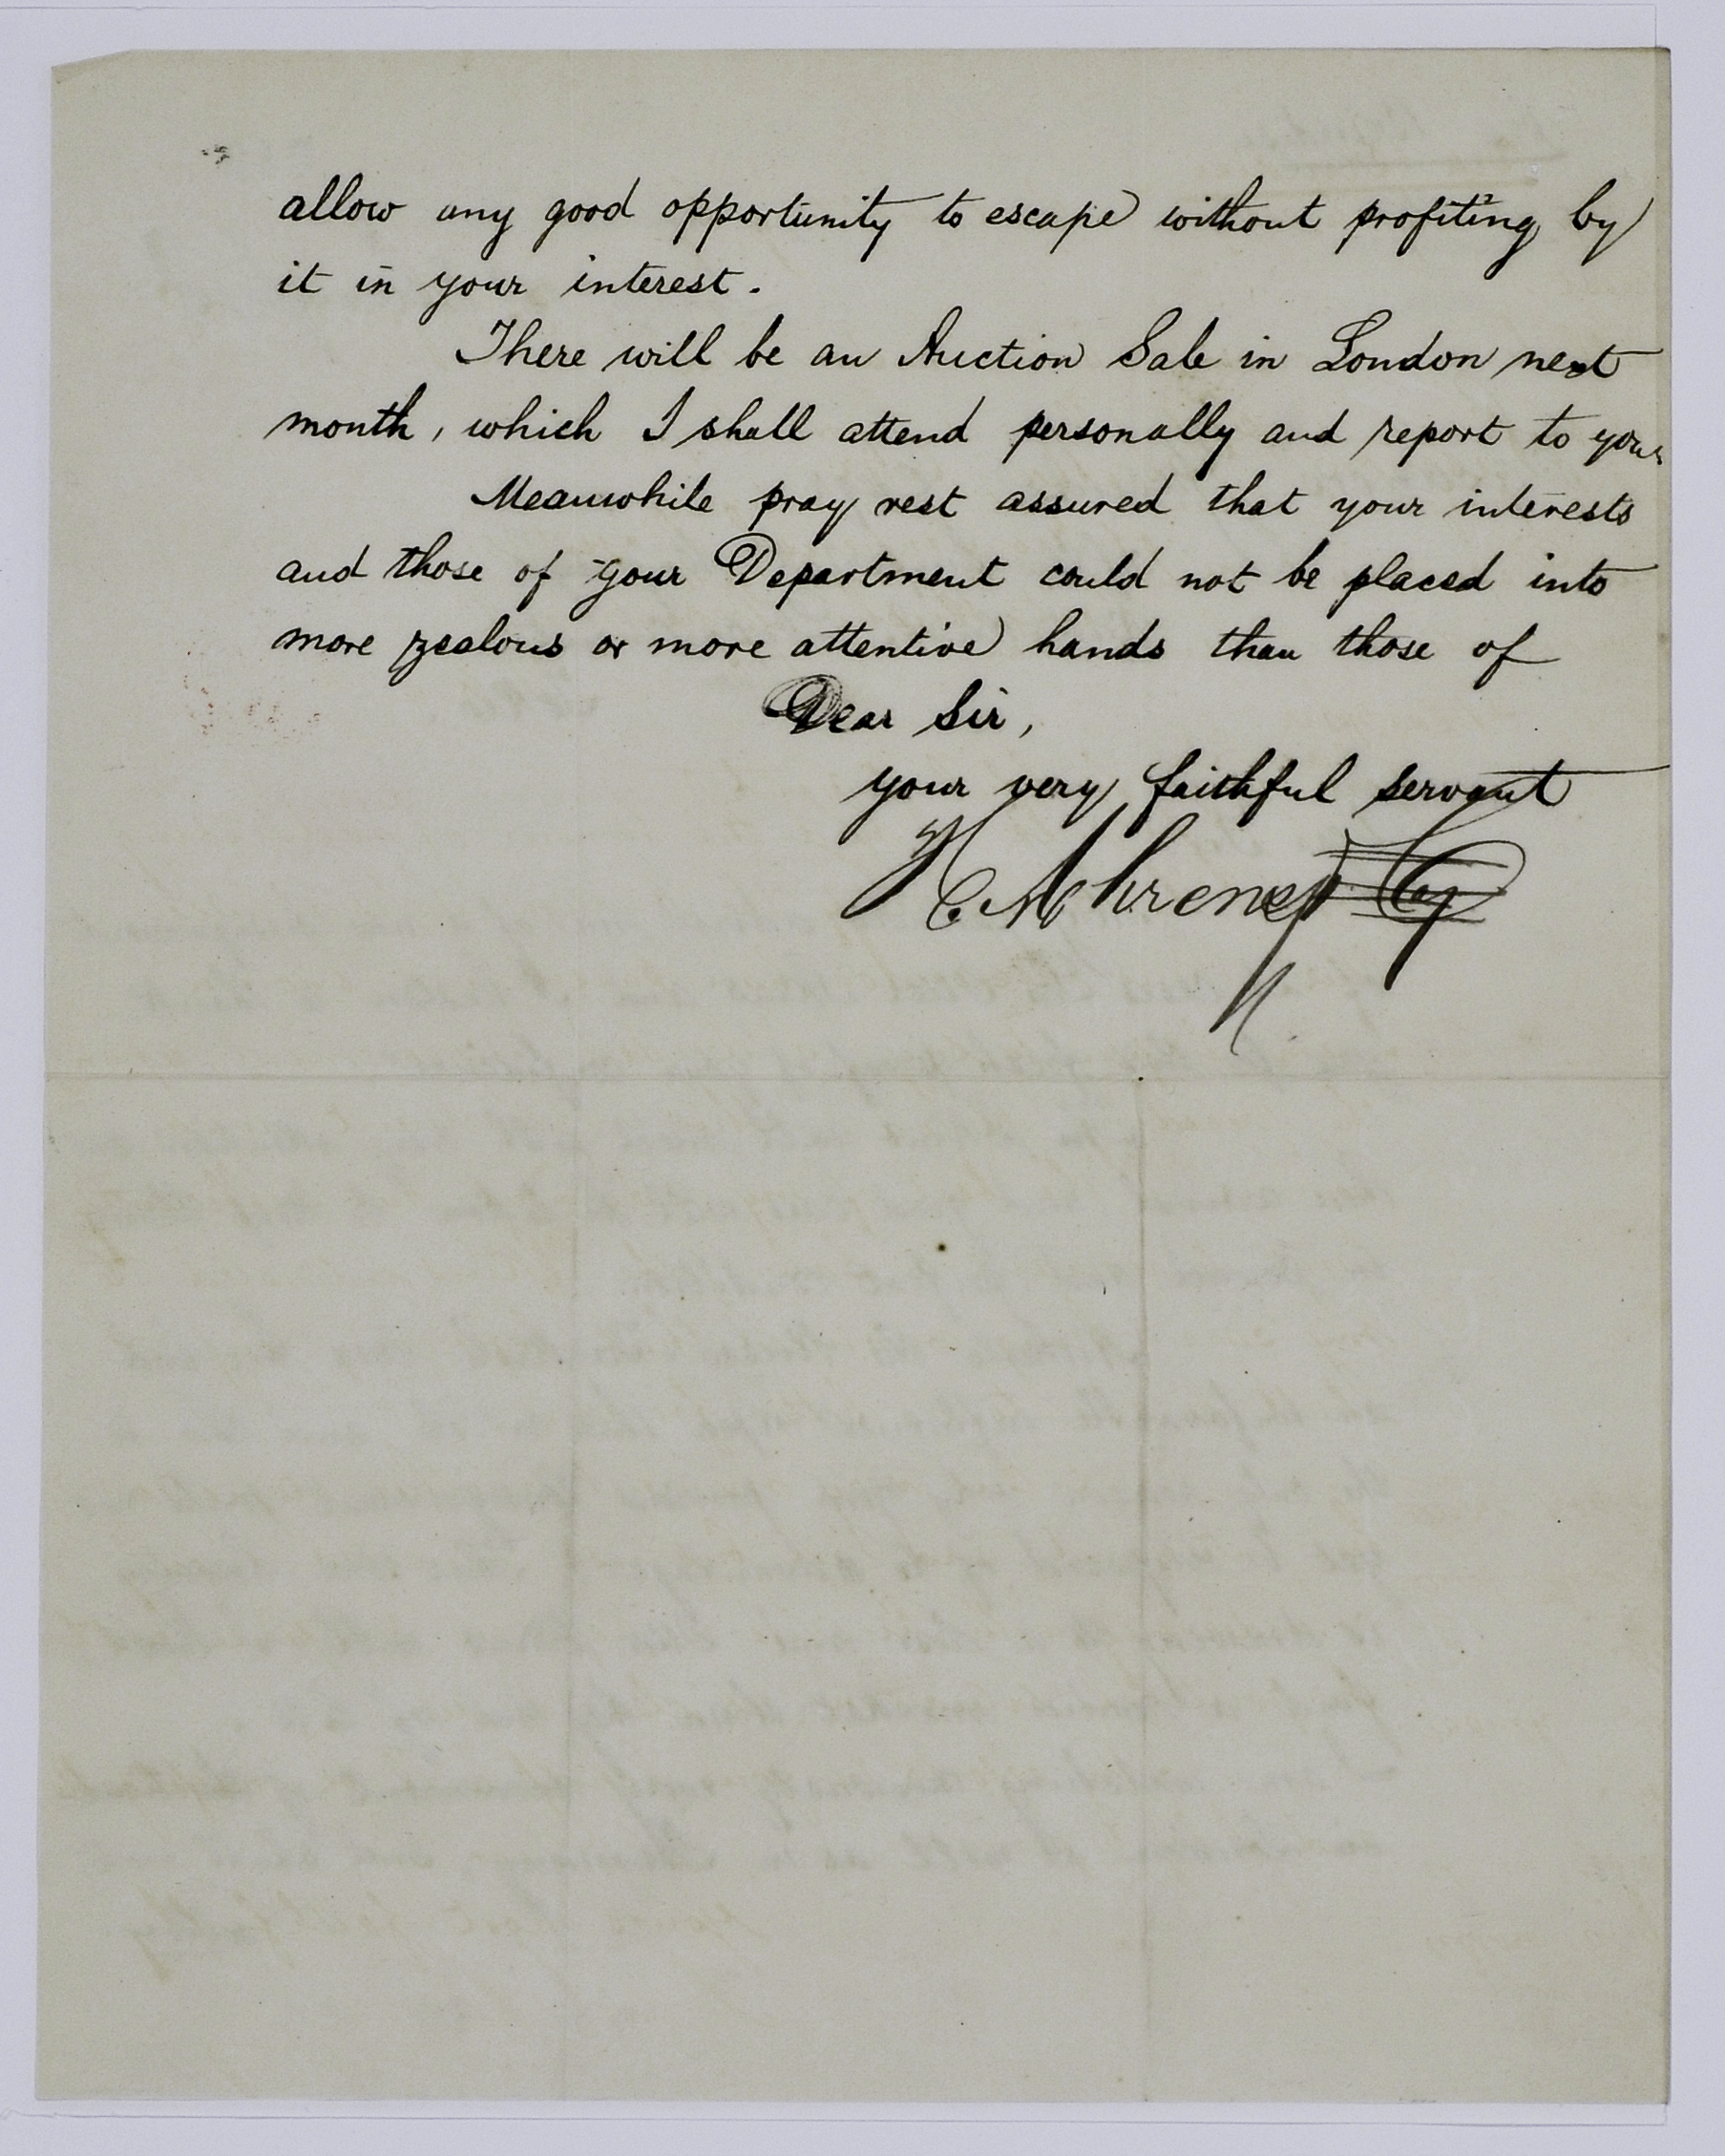 allow any good opportunity to escape without profiting by
it in your interest.
There will be an Auction Sale in London next
month, which I shall attend personally and report to you.
Meanwhile pray rest assured that your interests
and those of your Department could not be placed into
more zealous or more attentive hands than those of
Dear Sir,
your very faithful servant
H. Ahrens & Co